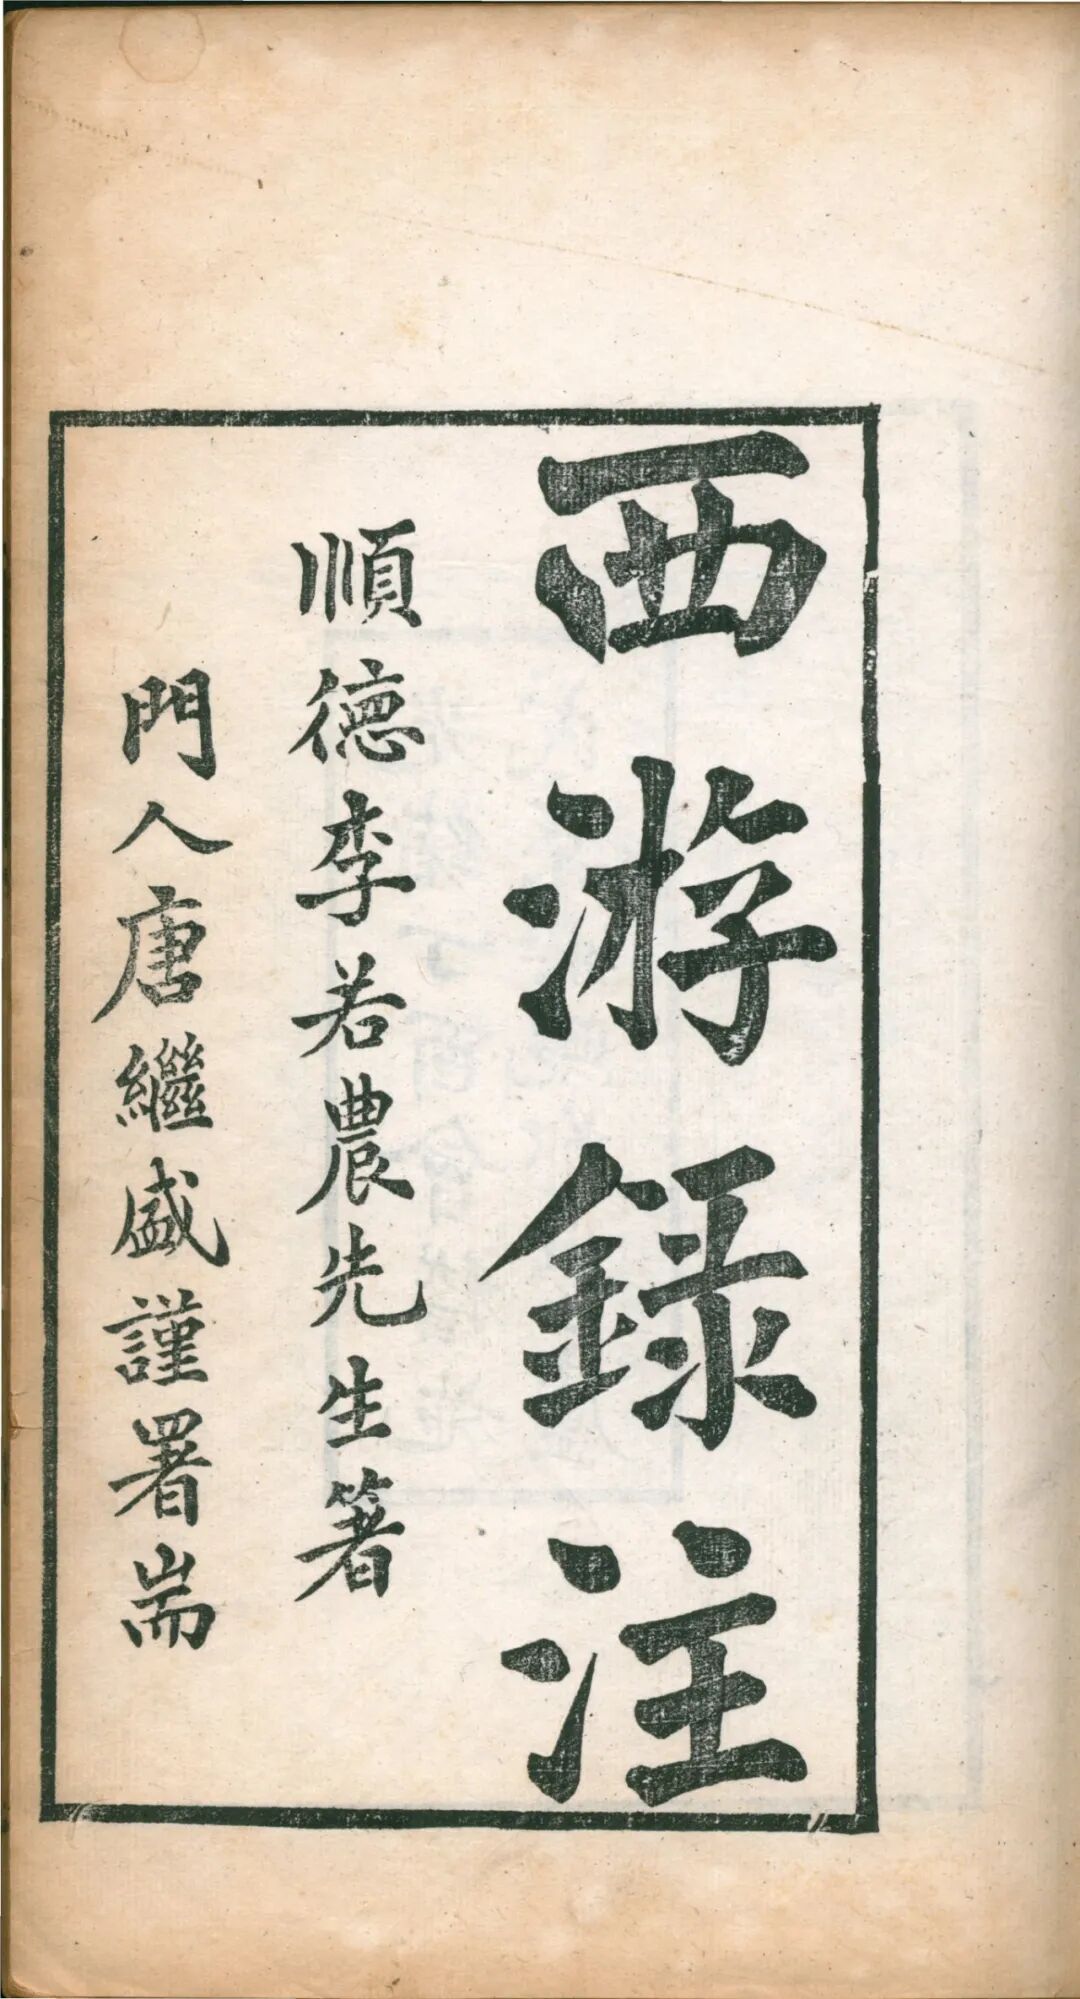 西游錄注
順德李若農先生箸
門人唐繼盛謹署耑